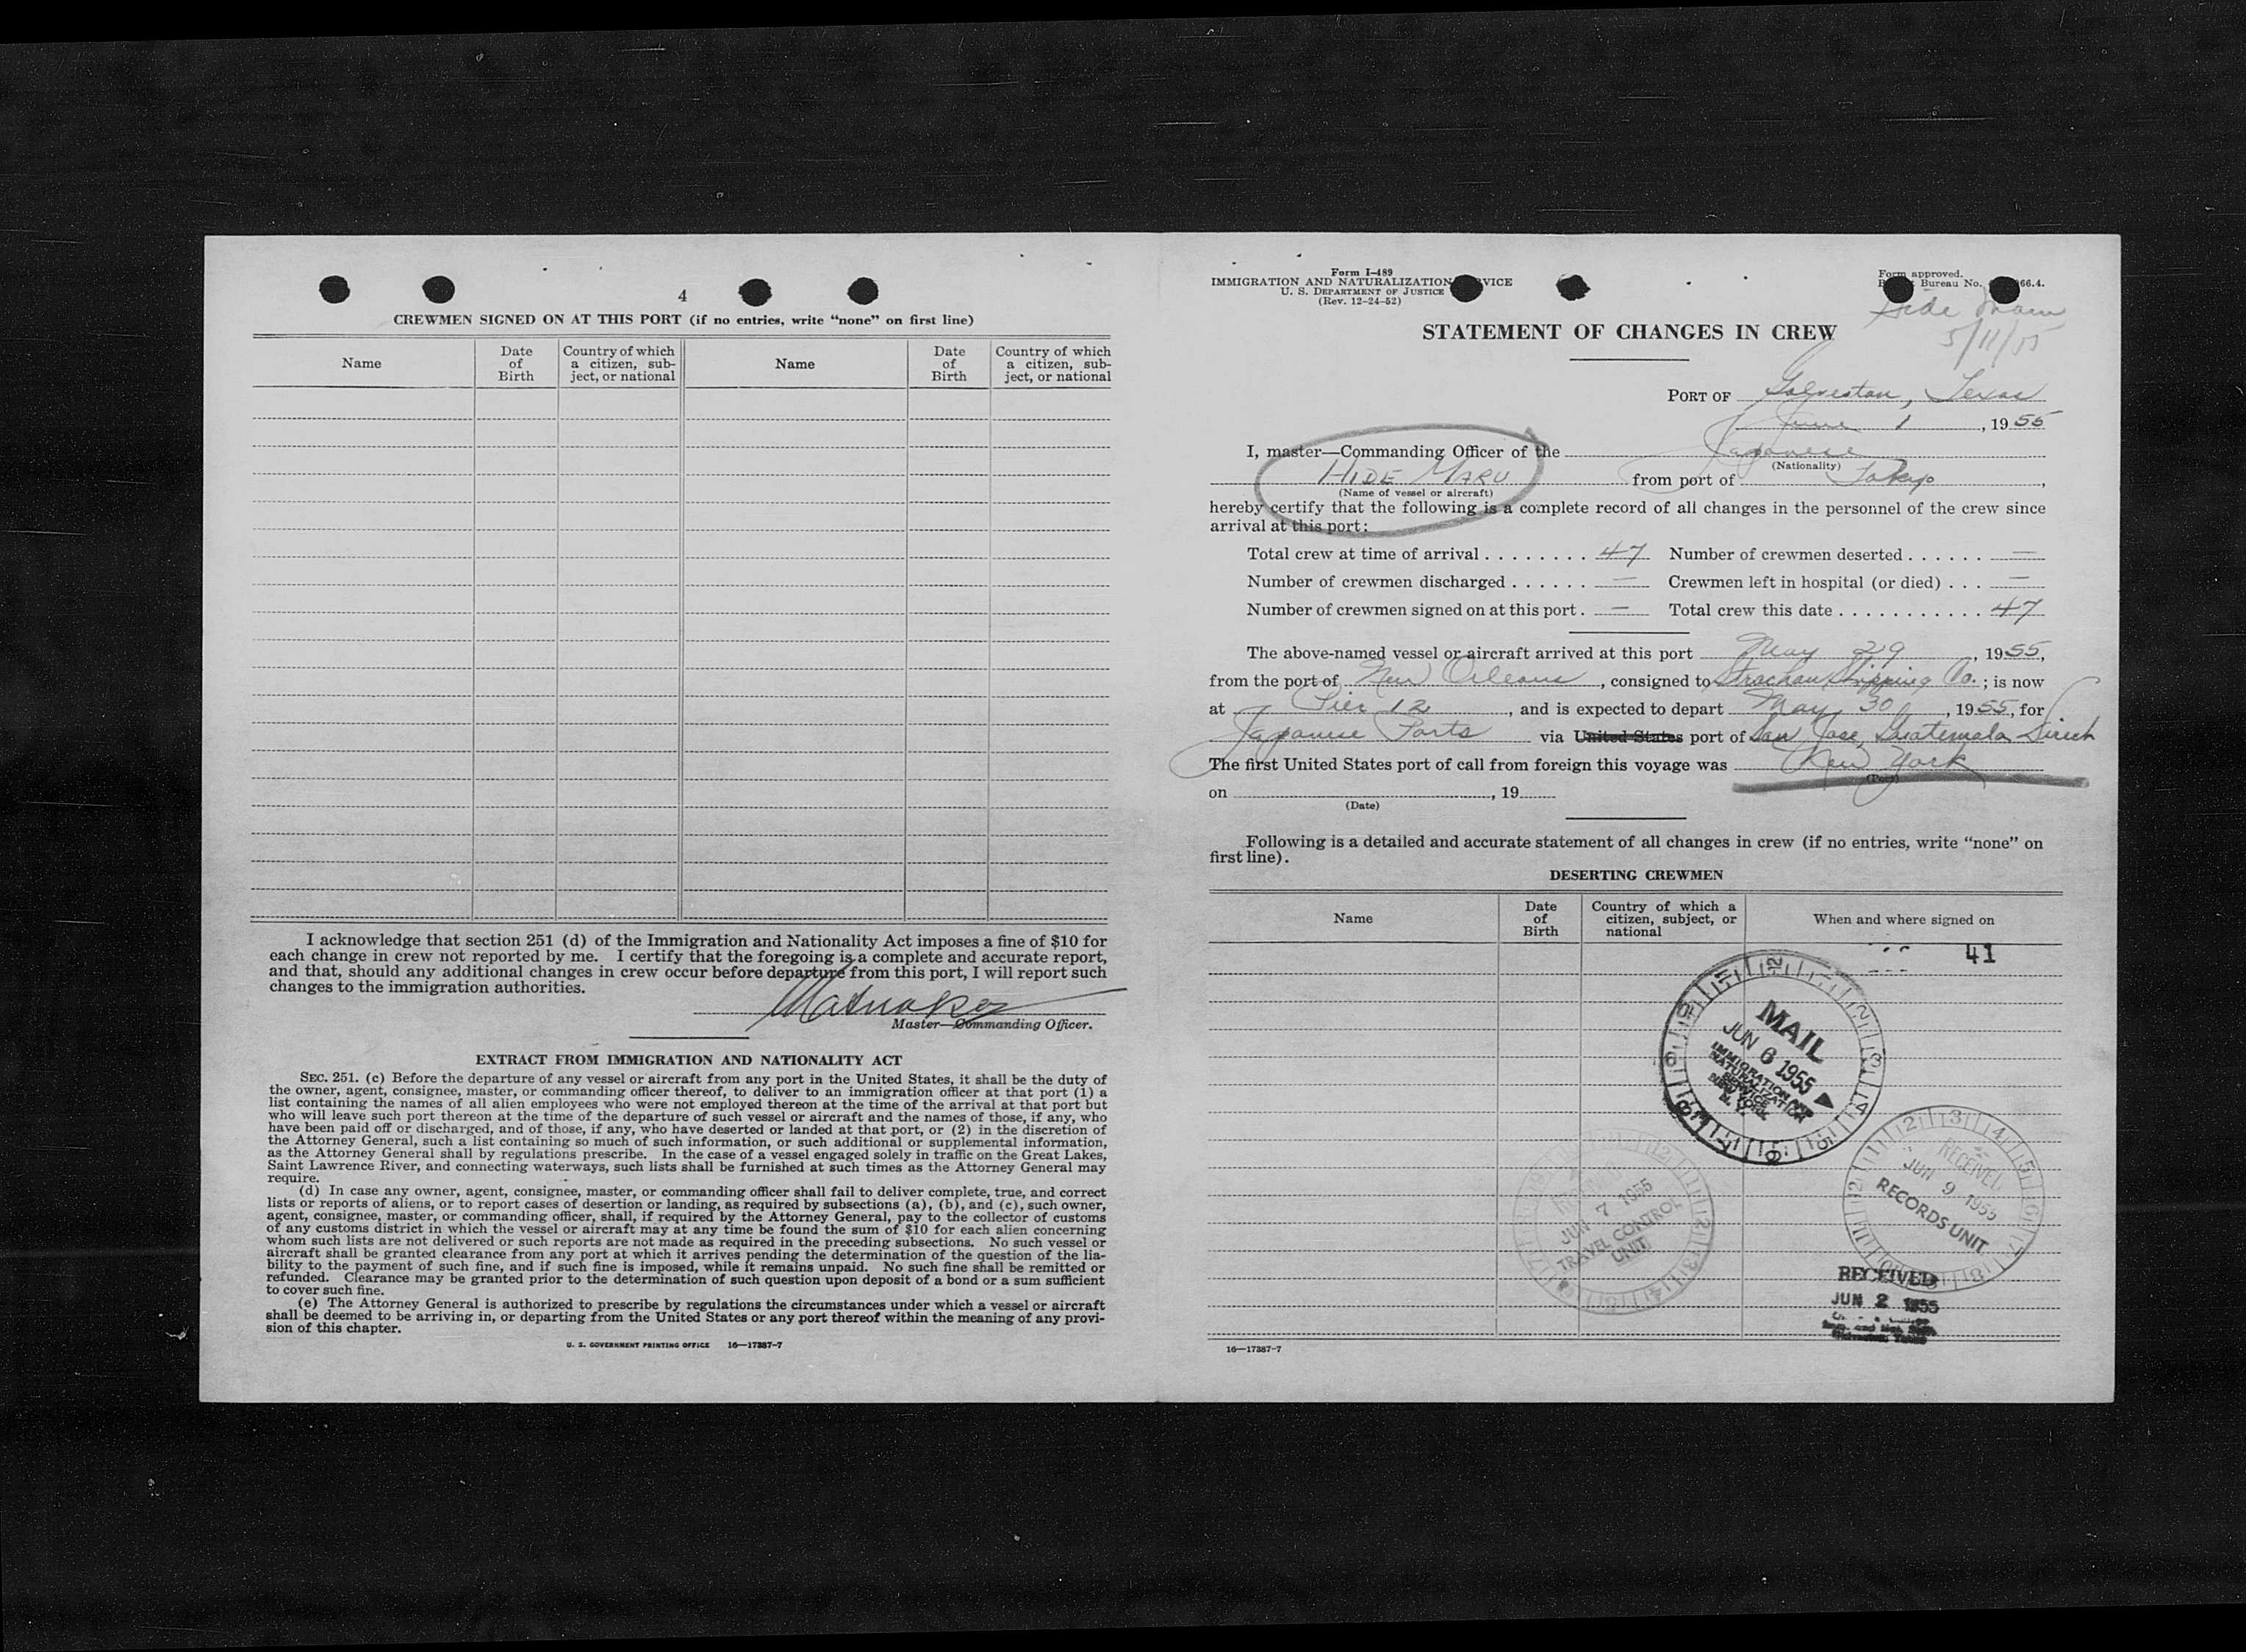 4
CREWMEN SIGNED ON AT THIS PORT (if no entries, write “none” on first line)
Name
Date of Birth
Country of which a citizen, sub-ject, or national
Name
Date of Birth
Country of which a citizen, sub-ject, or national
I acknowledge that section 251 (d) of the Immigration and Nationality Act imposes a fine of $10 for
each change in crew not reported by me. I certify that the foregoing is a complete and accurate report,
and that, should any additional changes in crew occur before departure from this port, I will report such
changes to the immigration authorities.
Master—Commanding Officer.
EXTRACT FROM IMMIGRATION AND NATIONALITY ACT
SEC. 251. (c) Before the departure of any vessel or aircraft from any port in the United States, it shall be the duty of
the owner, agent, consignee, master, or commanding officer thereof, to deliver to an immigration officer at that port (1) a
list containing the names of all alien employees who were not employed thereon at the time of the arrival at that port but
who will leave such port thereon at the time of the departure of such vessel or aircraft and the names of those, if any, who
have been paid off or discharged, and of those, if any, who have deserted or landed at that port, or (2) in the discretion of
the Attorney General, such a list containing so much of such information, or such additional or supplemental information,
as the Attorney General shall by regulations prescribe. In the case of a vessel engaged solely in traffic on the Great Lakes,
Saint Lawrence River, and connecting waterways, such lists shall be furnished at such times as the Attorney General may
require.
(d) In case any owner, agent, consignee, master, or commanding officer shall fail to deliver complete, true, and correct
lists or reports of aliens, or to report cases of desertion or landing, as required by subsections (a), (b), and (c), such owner,
agent, consignee, master, or commanding officer, shall, if required by the Attorney General, pay to the collector of customs
of any customs district in which the vessel or aircraft may at any time be found the sum of $10 for each alien concerning
whom such lists are not delivered or such reports are not made as required in the preceding subsections. No such vessel or
aircraft shall be granted clearance from any port at which it arrives pending the determination of the question of the lia-
bility to the payment of such fine, and if such fine is imposed, while it remains unpaid. No such fine shall be remitted or
refunded. Clearance may be granted prior to the determination of such question upon deposit of a bond or a sum sufficient
to cover such fine.
(e) The Attorney General is authorized to prescribe by regulations the circumstances under which a vessel or aircraft
shall be deemed to be arriving in, or departing from the United States or any port thereof within the meaning of any provi-
sion of this chapter.
U. S. GOVERNMENT PRINTING OFFICE 16—17387-7
Form I-489
IMMIGRATION AND NATURALIZATION VICE
U. S. DEPARTMENT OF JUSTICE
(Rev. 12-24-52)
Form approved.
Bureau No. 66.4.
Hide Maru
5/11/55
STATEMENT OF CHANGES IN CREW
PORT OF Galveston, Texas
June 1, 1955
I, master—Commanding Officer of the Japanese
(Nationality)
HIDE MARU from port of Tokyo,
(Name of vessel or aircraft)
hereby certify that the following is a complete record of all changes in the personnel of the crew since
arrival at this port:
Total crew at time of arrival . . . . . . . . 47 Number of crewmen deserted . . . . . . —
Number of crewmen discharged . . . . . . — Crewmen left in hospital (or died) . . . —
Number of crewmen signed on at this port . — Total crew this date . . . . . . . . . . . . 47
The above-named vessel or aircraft arrived at this port May 29, 1955,
from the port of New Orleans, consigned to Strachan Shipping Co.; is now
at Pier 12, and is expected to depart May 30, 1955, for
Japanese Ports via United States port of San Jose, Guatemala Direct
The first United States port of call from foreign this voyage was New York
(Port)
on , 19
(Date)
Following is a detailed and accurate statement of all changes in crew (if no entries, write “none” on
first line).
DESERTING CREWMEN
Name
Date of Birth
Country of which a citizen, subject, or national
When and where signed on
41
MAIL
JUN 6 1955
IMMIGRATION AND
NATURALIZATION
SERVICE
NEW YORK
N. Y.
RECEIVED
JUN 7 1955
TRAVEL CONTROL
UNIT
RECEIVED
JUN 9 1955
RECORDS UNIT
RECEIVED
JUN 2 1955
16—17387-7